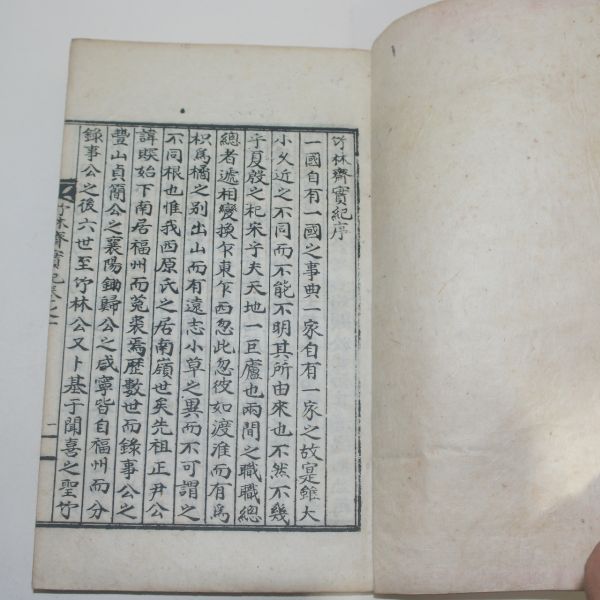 竹林齋實紀序
一國自有一國之事典一家自有一家之故寔雖大
小久近之不同而不能不明其所由來也不然不幾
乎夏殷之杞宋乎夫天地一巨廬也兩間之職職總
總者遞相變換乍東乍西忽此忽彼如渡淮而有爲
枳爲橘之别出山而有遠志小草之異而不可謂之
不同根也惟我西原氏之居南嶺世矣先祖正尹公
諱 始下南居福州而菟裘焉歷數世而錄事公之
豐山貞簡公之襄陽鋤歸公之咸寧皆自福州而分
錄事公之後六世至竹林公又卜基于聞喜之聖竹
竹林齋實紀卷之一
一